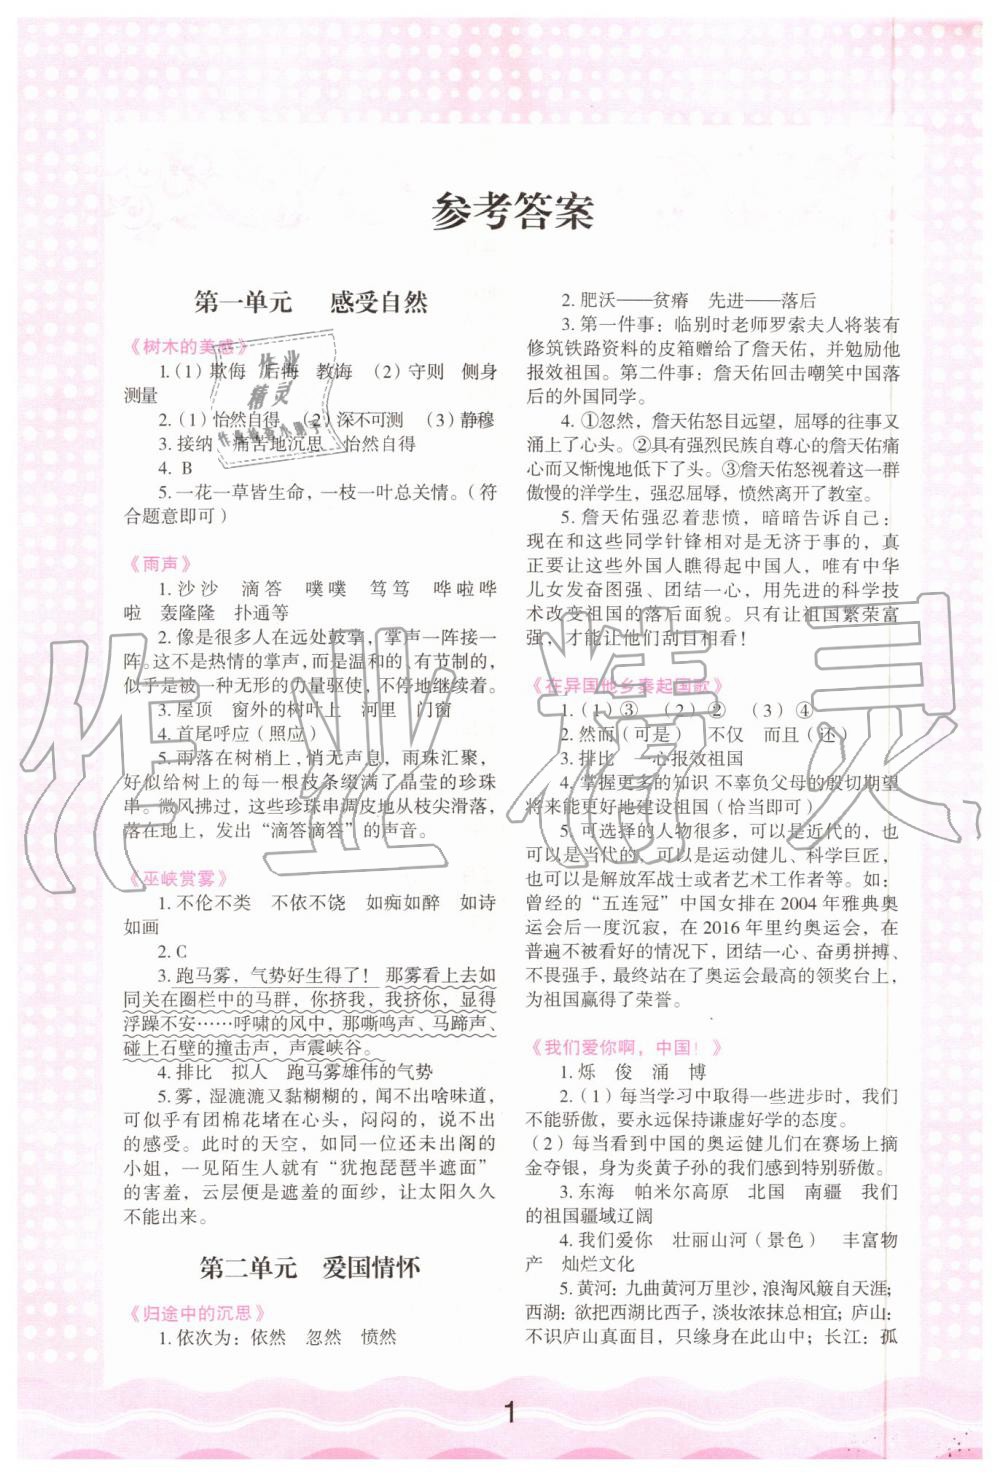 参考答案
第一单元　感受自然
《树木的美感》
1.(1)欺侮　后悔　教诲　(2)守则　侧身
测量
2.(1)怡然自得　(2)深不可测　(3)静穆
3.接纳　痛苦地沉思　怡然自得
4. B
5.一花一草皆生命，一枝一叶总关情。（符
合题意即可）
《雨声》
1.沙沙　滴答　噗噗　笃笃　哗啦哗
啦　轰隆隆　扑通等
2.像是很多人在远处鼓掌，掌声一阵接一
阵。这不是热情的掌声，而是温和的、有节制的，
似乎是被一种无形的力量驱使，不停地继续着。
3.屋顶　窗外的树叶上　河里　门窗
4.首尾呼应（照应）
5.雨落在树梢上，悄无声息，雨珠汇聚，
好似给树上的每一根枝条缀满了晶莹的珍珠
串。微风拂过，这些珍珠串调皮地从枝尖滑落，
落在地上，发出“滴答滴答”的声音。
《巫峡赏雾》
1.不伦不类　不依不饶　如痴如醉　如诗
如画
2.C
3.跑马雾，气势好生得了！那雾看上去如
同关在圈栏中的马群，你挤我，我挤你，显得
浮躁不安……呼啸的风中，那嘶鸣声、马蹄声、
碰上石壁的撞击声，声震峡谷。
4.排比　拟人　跑马雾雄伟的气势
5.雾，湿漉漉又黏糊糊的，闻不出啥味道，
可似乎有团棉花堵在心头，闷闷的，说不出
的感受。此时的天空，如同一位还未出阁的
小姐，一见陌生人就有“犹抱琵琶半遮面”
的害羞，云层便是遮羞的面纱，让太阳久久
不能出来。
第二单元　爱国情怀
《归途中的沉思》
1.依次为：依然　忽然　愤然
2.肥沃——贫瘠　先进——落后
3.第一件事：临别时老师罗索夫人将装有
修筑铁路资料的皮箱赠给了詹天佑，并勉励他
报效祖国。第二件事：詹天佑回击嘲笑中国落
后的外国同学。
4.①忽然，詹天佑怒目远望，屈辱的往事又
涌上了心头。②具有强烈民族自尊心的詹天佑痛
心而又惭愧地低下了头。③詹天佑怒视着这一群
傲慢的洋学生，强忍屈辱，愤然离开了教室。
5.詹天佑强忍着悲愤，暗暗告诉自己：
现在和这些同学针锋相对是无济于事的，真
正要让这些外国人瞧得起中国人，唯有中华
儿女发奋图强、团结一心，用先进的科学技
术改变祖国的落后面貌。只有让祖国繁荣富
强，才能让他们刮目相看！
《在异国他乡奏起国歌》
1.(1)③　(2)②　(3)④
2.然而（可是）　不仅　而且（还）
3.排比　一心报效祖国
4.掌握更多的知识　不辜负父母的殷切期望
将来能更好地建设祖国（恰当即可）
5.可选择的人物很多，可以是近代的，也
可以是当代的；可以是运动健儿、科学巨匠，
也可以是解放军战士或者艺术工作者等。如：
曾经的“五连冠”中国女排在2004年雅典奥
运会后一度沉寂，在2016年里约奥运会，在
普遍不被看好的情况下，团结一心、奋勇拼搏、
不畏强手，最终站在了奥运会最高的领奖台上，
为祖国赢得了荣誉。
《我们爱你啊，中国！》
1.烁　俊　涌　博
2.（1）每当学习中取得一些进步时，我们
不能骄傲，要永远保持谦虚好学的态度。
（2）每当看到中国的奥运健儿们在赛场上摘
金夺银，身为炎黄子孙的我们感到特别骄傲。
3.东海　帕米尔高原　北国　南疆　我们
的祖国疆域辽阔
4.我们爱你　壮丽山河（景色）　丰富物
产　灿烂文化
5.黄河：九曲黄河万里沙，浪淘风簸自天涯；
西湖：欲把西湖比西子，淡妆浓抹总相宜；庐山：
不识庐山真面目，只缘身在此山中；长江：孤
1
作业精灵
作业
精灵